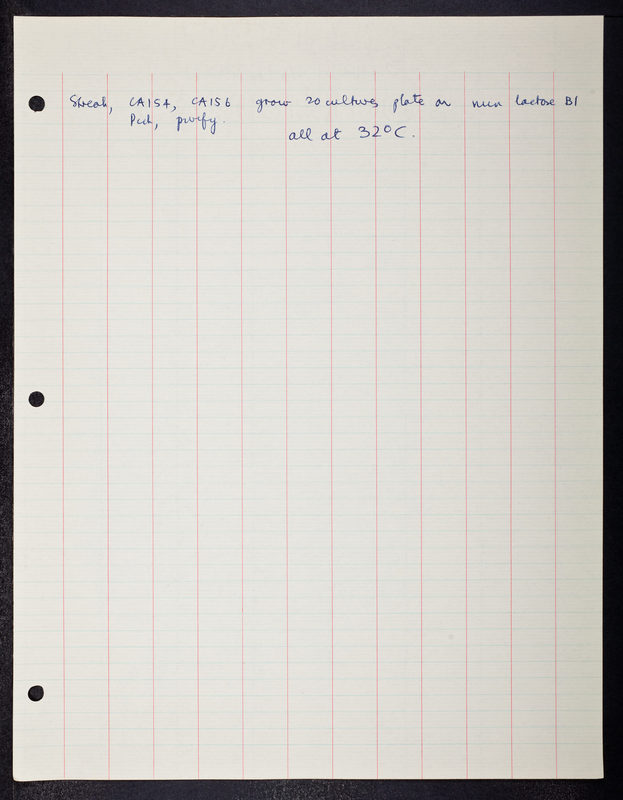 Streak, CA154, CA156 grow 20 cultures, plate on min lactose B1
Pick, purify.
all at 32°C.